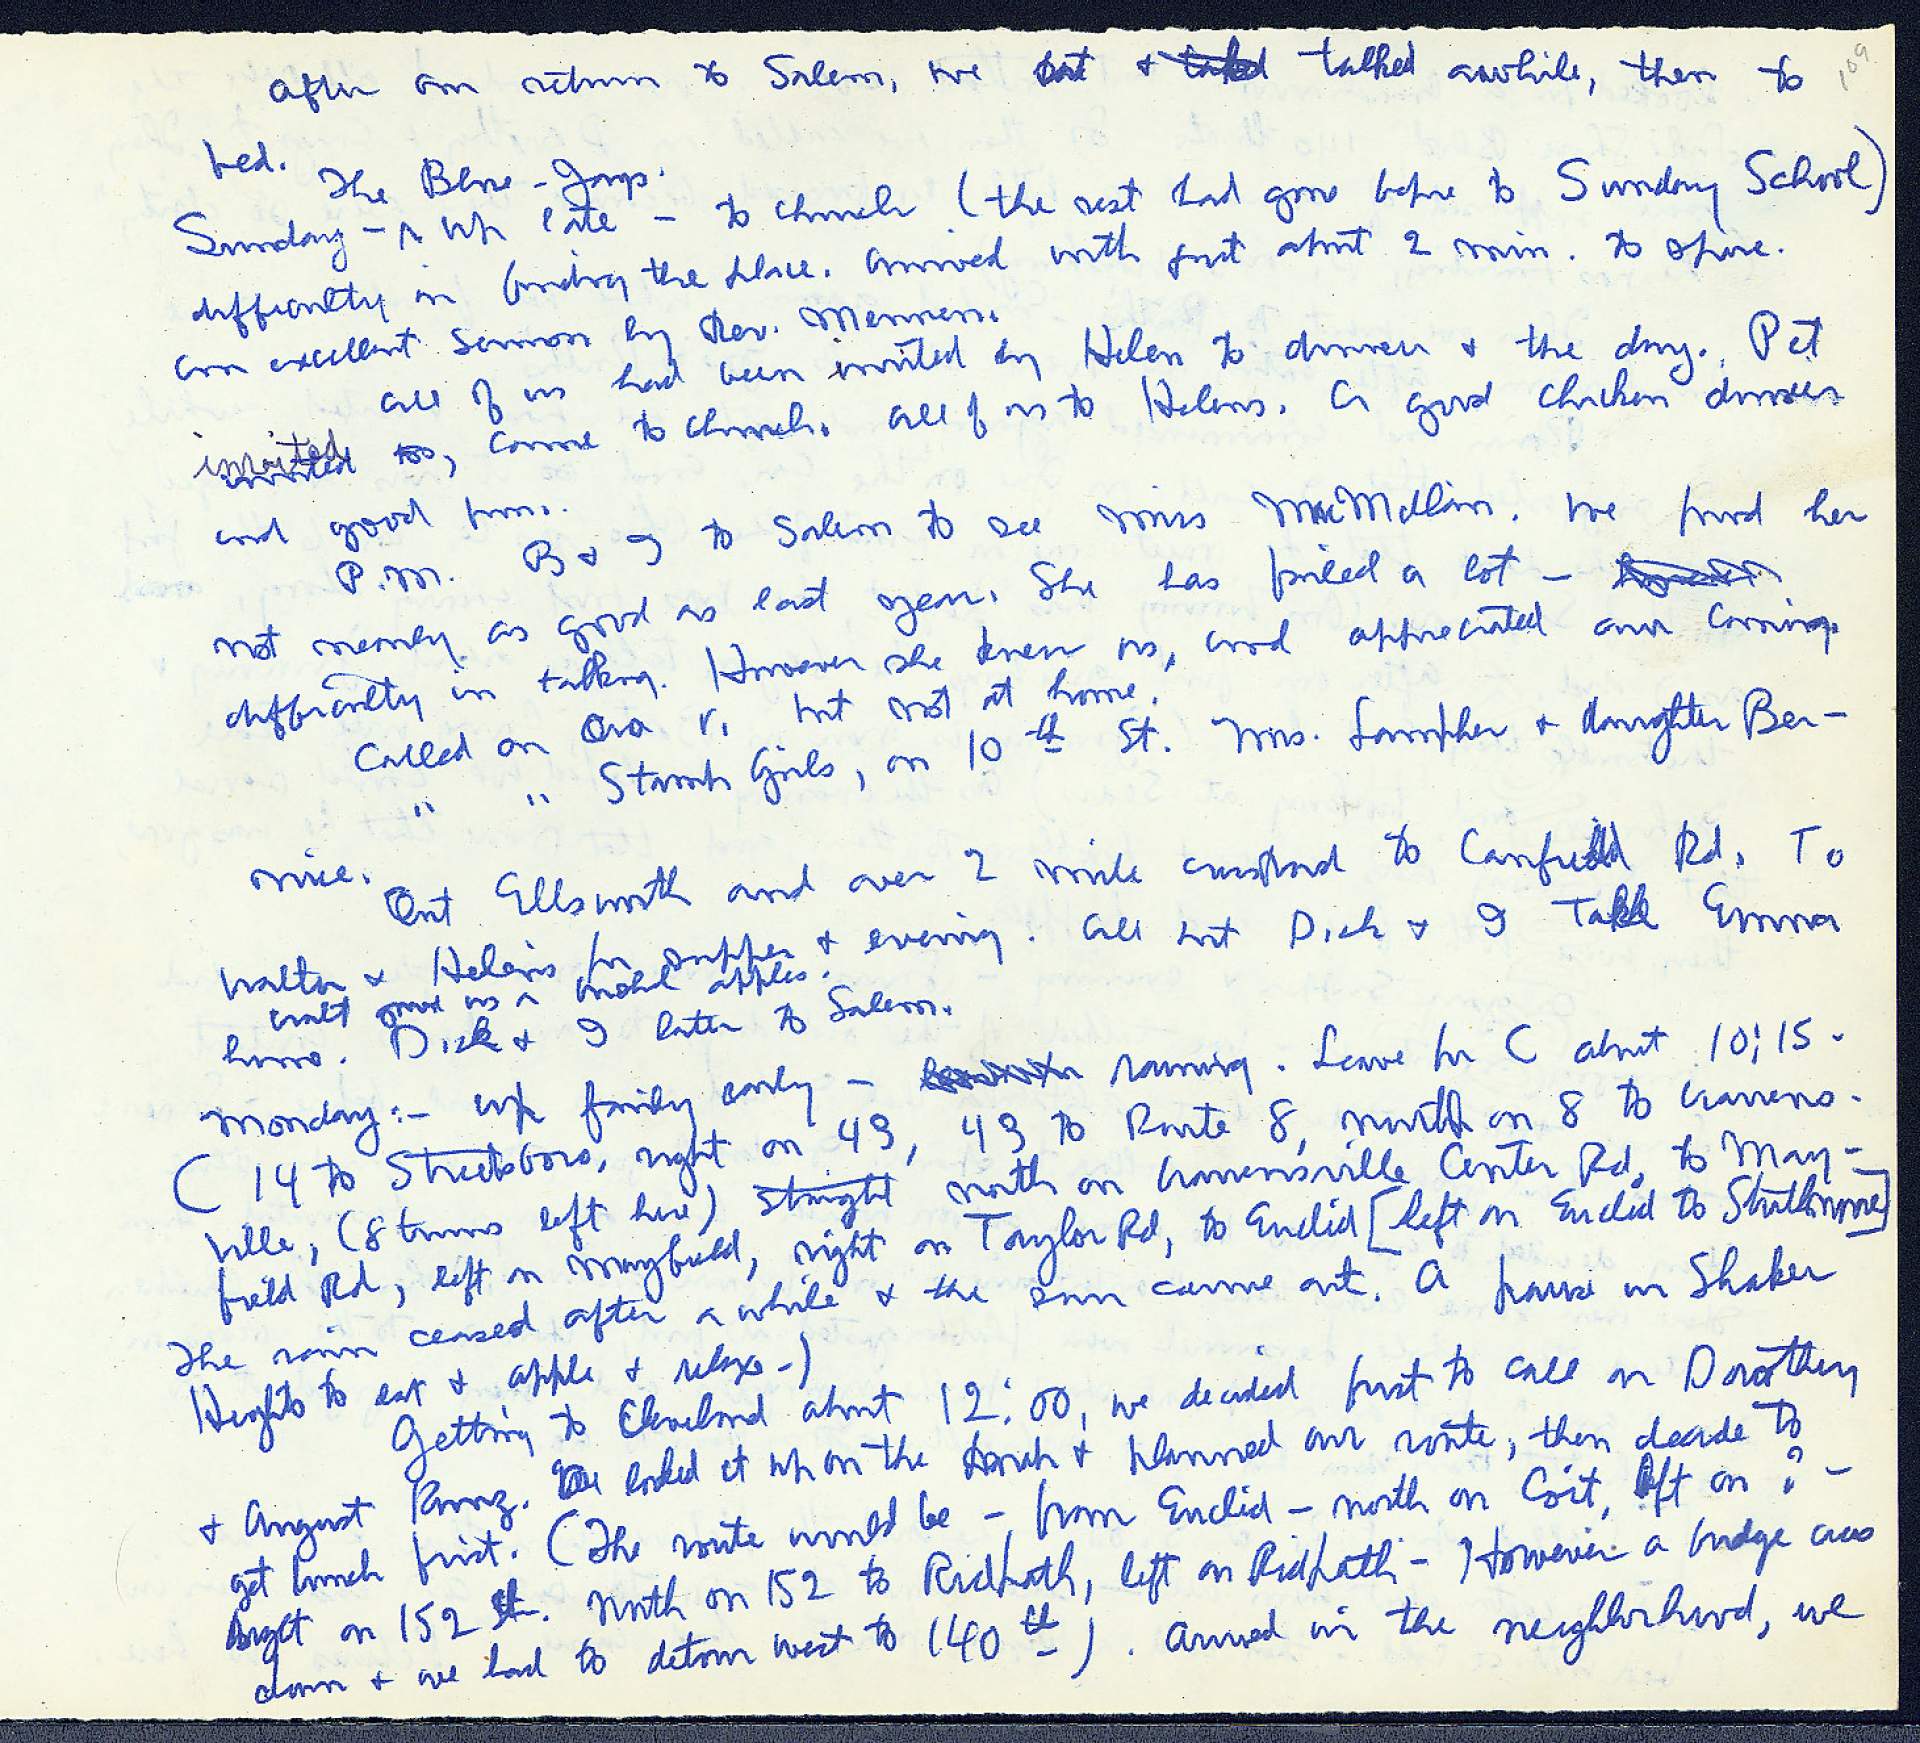 109
After our return to Salem, we sat & talked talked awhile, then to
bed.
The Blue-Jays.
Sunday - up late - to church (the rest had gone before to Sunday School)
difficulty in finding the place. Arrived with just about 2 min. to spare.
An excellent sermon by Rev. Mennen.
All of us had been invited by Helen to dinner & the day. Pet
invited too, came to church. All of us to Helens. A good chicken dinner
and good fun.
P.M. B & I to Salem to see Miss MacMillan. We found her
not nearly as good as last year. She has failed a lot -
difficulty in talking. However she knew us, and appreciated our coming.
Called on Ora V. but not at home.
" " Stamp Girls, on 10th St. Mrs. Lampher & daughter Ber-
nice.
Out Ellsworth and over 2 mile crossroad to Canfield Rd. To
Walter & Helen's for supper & evening. All but Dick & I take Emma
Walt gave us a bushel apples.
home. Dick & I later to Salem.
Monday:- up fairly early - raining. Leave for C about 10:15.
(14 to Streetsboro, right on 43, 43 to Route 8, north on 8 to Warrens-
ville, (8 turns left here) straight north on Warrensville Center Rd, to May-
field Rd, left on Mayfield, right on Taylor Rd, to Euclid [left on Euclid to Strathmore]
The rain ceased after awhile & the sun came out. A pause in Shaker
Heights to eat & apple & relax -)
Getting to Cleveland about 12:00, we decided first to call on Dorothy
& August Kunz. We looked it up on the & planned our route, then decide to
get lunch first. (The route would be - from Euclid - north on Coit, left on ? -
right on 152 St. North on 152 to Ridpath, left on Ridpath - However a bridge was
down & we had to detour west to 140th). Arrived in the neighborhood, we